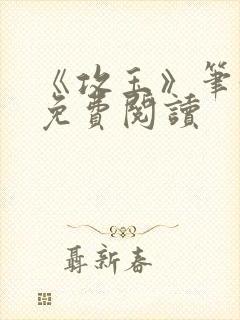 《攻玉》筆
免費閱讀
聶新春